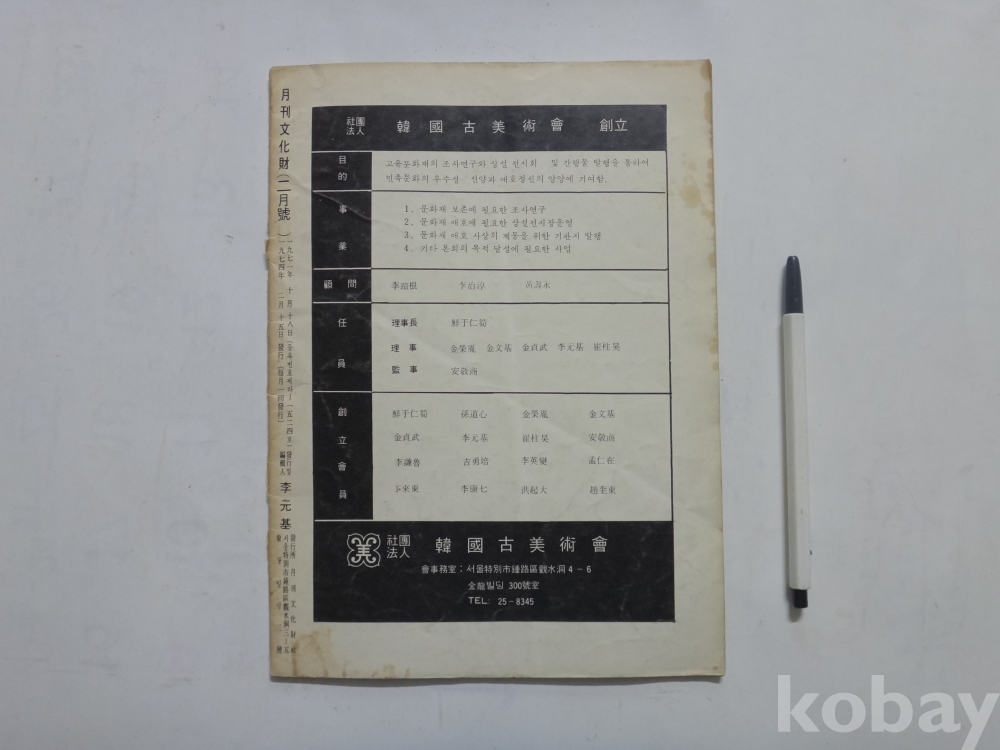 社團法人 韓國古美術會 創立
目的
고육문화재의 조사연구와 상설 전시회 및 간행물 발행을 통하여
민족문화의 우수성 선양과 애호정신의 앙양에 기여함.
事業
1. 문화재 보존에 필요한 조사연구
2. 문화재 애호에 필요한 상설전시장운영
3. 문화재 애호 사상의 계몽을 위한 기관지 발행
4. 기타 본회의 목적 달성에 필요한 사업
顧問 李瑄根 李治淳 黃壽永
任員
理事長 鮮于仁筍
理事 金榮胤 金文基 金貞武 李元基 崔柱昊
監事 安敎卨
創立會員
鮮于仁筍 孫道心 金榮胤 金文基
金貞武 李元基 崔柱昊 安敎卨
李謙魯 吉勇培 李英燮 孟仁在
李來東 李康七 洪起大 趙奎東
社團法人 韓國古美術會
會事務室: 서울特別市鍾路區觀水洞 4-6
金龍빌딩 300號室
TEL: 25-8345
月刊文化財 (二月號)
一九七一年 十月十八日
一九七四年 二月十五日 發行 (每月一回發行)
編輯人 李元基
發行所 月刊文化財社
서울特別市鍾路區觀水洞
kobay